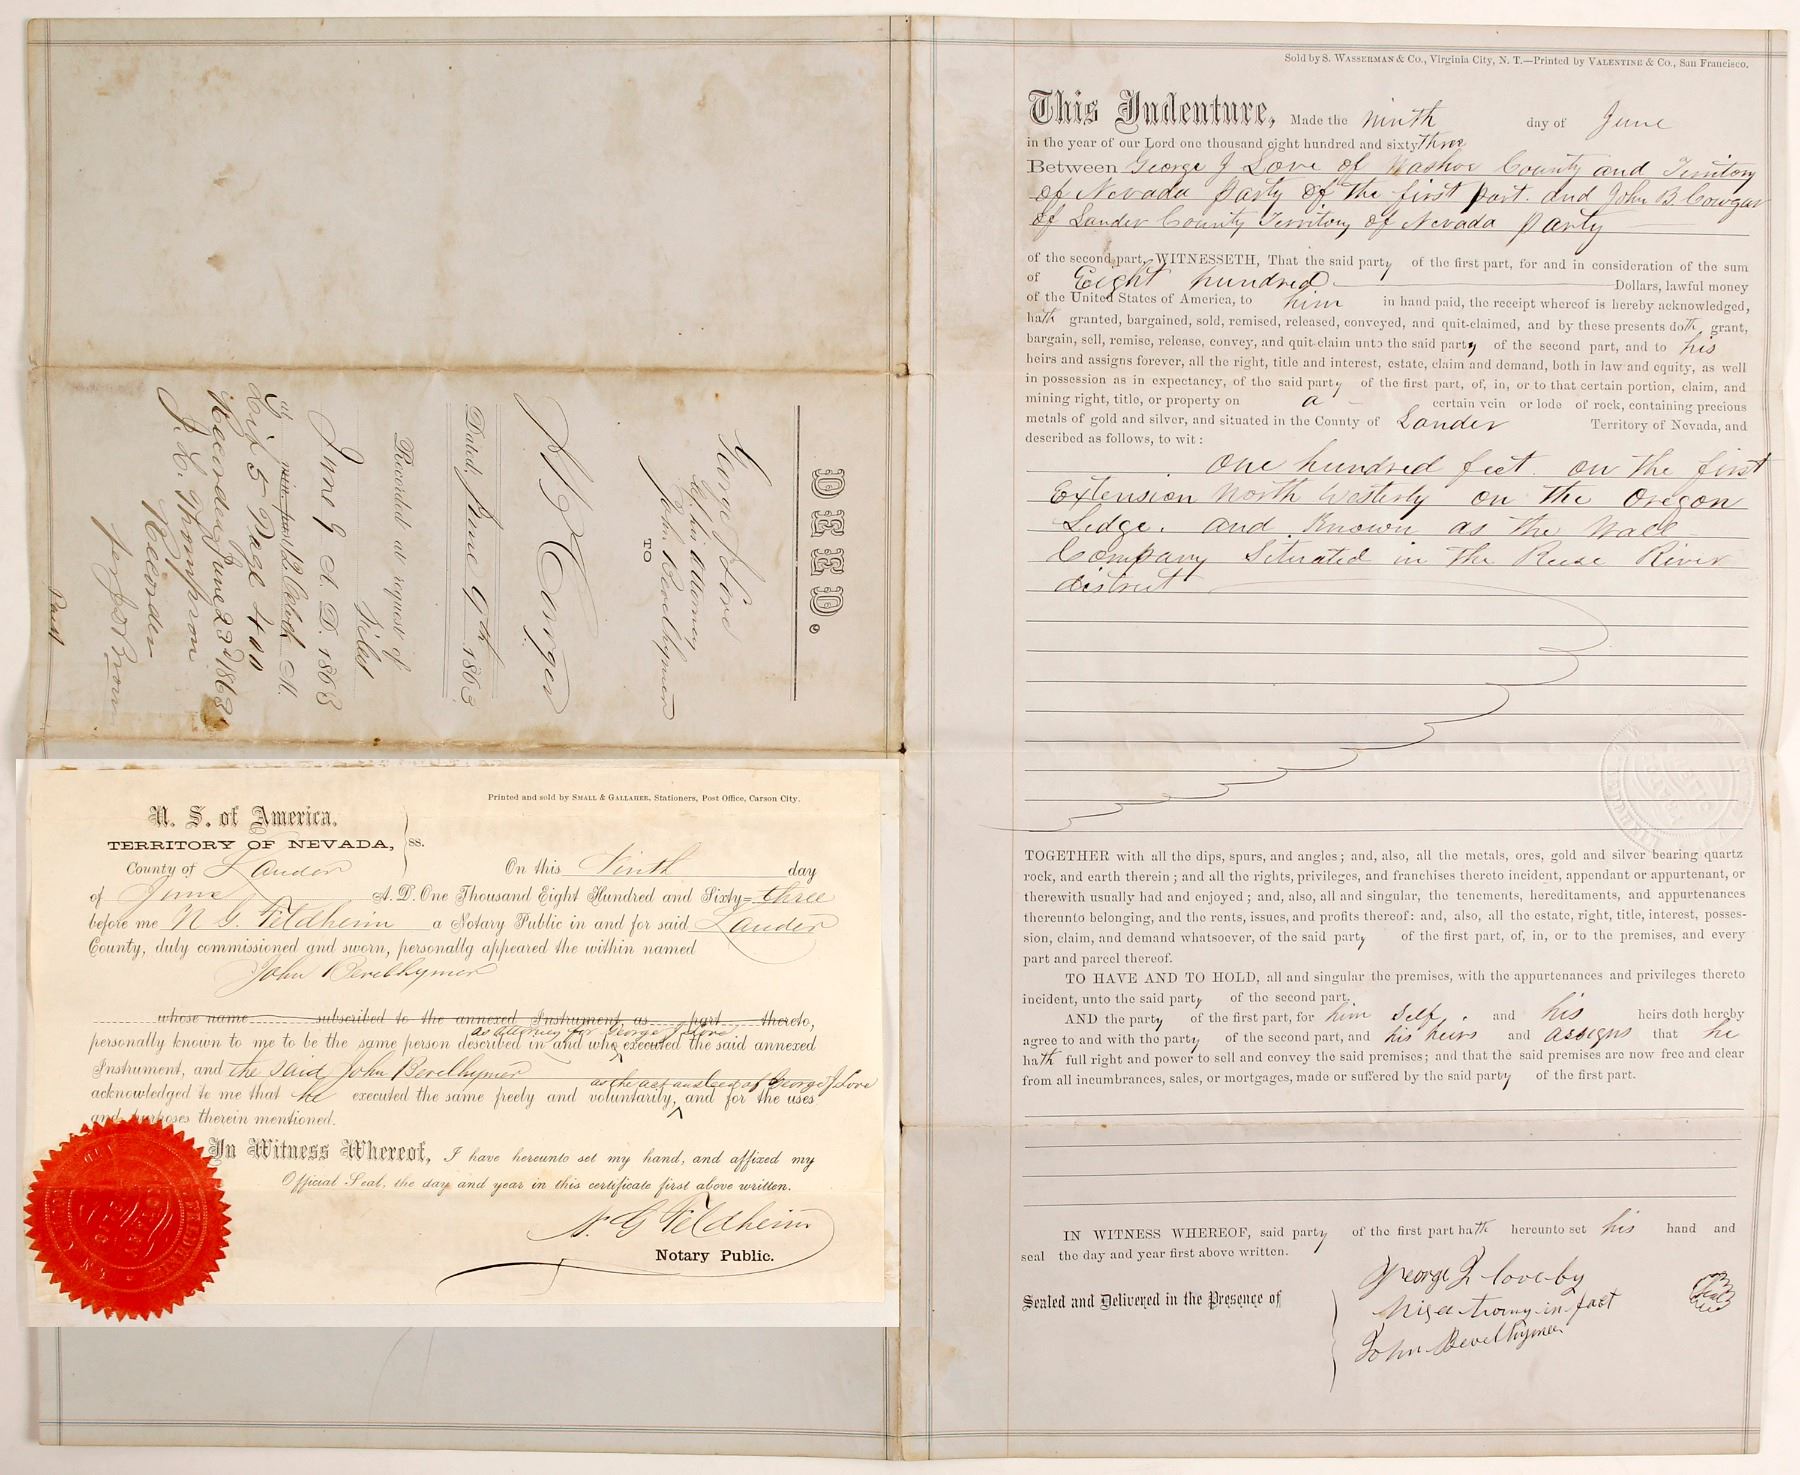 DEED.
George J Love
by his attorney
John Bevelhymer
TO
Dated, June 9th 1863
Recorded at request of
Filed
June 9 A. D. 1863
at min. past 12 Oclock M.
Lif 5 Page 400
Recorded June 22d 1863
J. L. Thompson
Recorder
Paid
Printed and sold by SMALL & GALLAHER, Stationers, Post Office, Carson City.
U. S. of America,
TERRITORY OF NEVADA, ss.
County of Lander On this Ninth day
of June A. D. One Thousand Eight Hundred and Sixty=three
before me N G Feldheim a Notary Public in and for said Lander
County, duly commissioned and sworn, personally appeared the within named
John Bevelhymer
whose name subscribed to the annexed Instrument as part thereto,
as Attorney for George J Love
personally known to me to be the same person described in and who executed the said annexed
Instrument, and the said John Bevelhymer
as the act and deed of George J Love
acknowledged to me that he executed the same freely and voluntarily, and for the uses
and purposes therein mentioned.
In Witness Whereof, I have hereunto set my hand, and affixed my
Official Seal, the day and year in this certificate first above written.
N. G Feldheim
Notary Public.
Sold by S. WASSERMAN & CO., Virginia City, N. T.—Printed by VALENTINE & CO., San Francisco.
This Indenture, Made the ninth day of June
in the year of our Lord one thousand eight hundred and sixty three
Between George J Love of Washoe County and Territory
of Nevada Party of the first part. and John B. Cowgar
of Lander County Territory of Nevada Party
of the second part, WITNESSETH, That the said party of the first part, for and in consideration of the sum
of Eight hundred Dollars, lawful money
of the United States of America, to him in hand paid, the receipt whereof is hereby acknowledged,
hath granted, bargained, sold, remised, released, conveyed, and quit-claimed, and by these presents doth grant,
bargain, sell, remise, release, convey, and quit claim unto the said party of the second part, and to his
heirs and assigns forever, all the right, title and interest, estate, claim and demand, both in law and equity, as well
in possession as in expectancy, of the said party of the first part, of, in, or to that certain portion, claim, and
mining right, title, or property on a certain vein or lode of rock, containing precious
metals of gold and silver, and situated in the County of Lander Territory of Nevada, and
described as follows, to wit:
One hundred feet on the first
Extension North Westerly on the Oregon
Ledge. and Known as the Wall
Company Situated in the Reese River
district
TOGETHER with all the dips, spurs, and angles; and, also, all the metals, ores, gold and silver bearing quartz
rock, and earth therein; and all the rights, privileges, and franchises thereto incident, appendant or appurtenant, or
therewith usually had and enjoyed; and, also, all and singular, the tenements, hereditaments, and appurtenances
thereunto belonging, and the rents, issues, and profits thereof: and, also, all the estate, right, title, interest, posses-
sion, claim, and demand whatsoever, of the said party of the first part, of, in, or to the premises, and every
part and parcel thereof.
TO HAVE AND TO HOLD, all and singular the premises, with the appurtenances and privileges thereto
incident, unto the said party of the second part.
AND the party of the first part, for him self. and his heirs doth hereby
agree to and with the party of the second part, and his heirs and assigns that he
hath full right and power to sell and convey the said premises; and that the said premises are now free and clear
from all incumbrances, sales, or mortgages, made or suffered by the said party of the first part.
IN WITNESS WHEREOF, said party of the first part hath hereunto set his hand and
seal the day and year first above written.
Sealed and Delivered in the Presence of
George J love by
his attorny in fact
John Bevelhymer